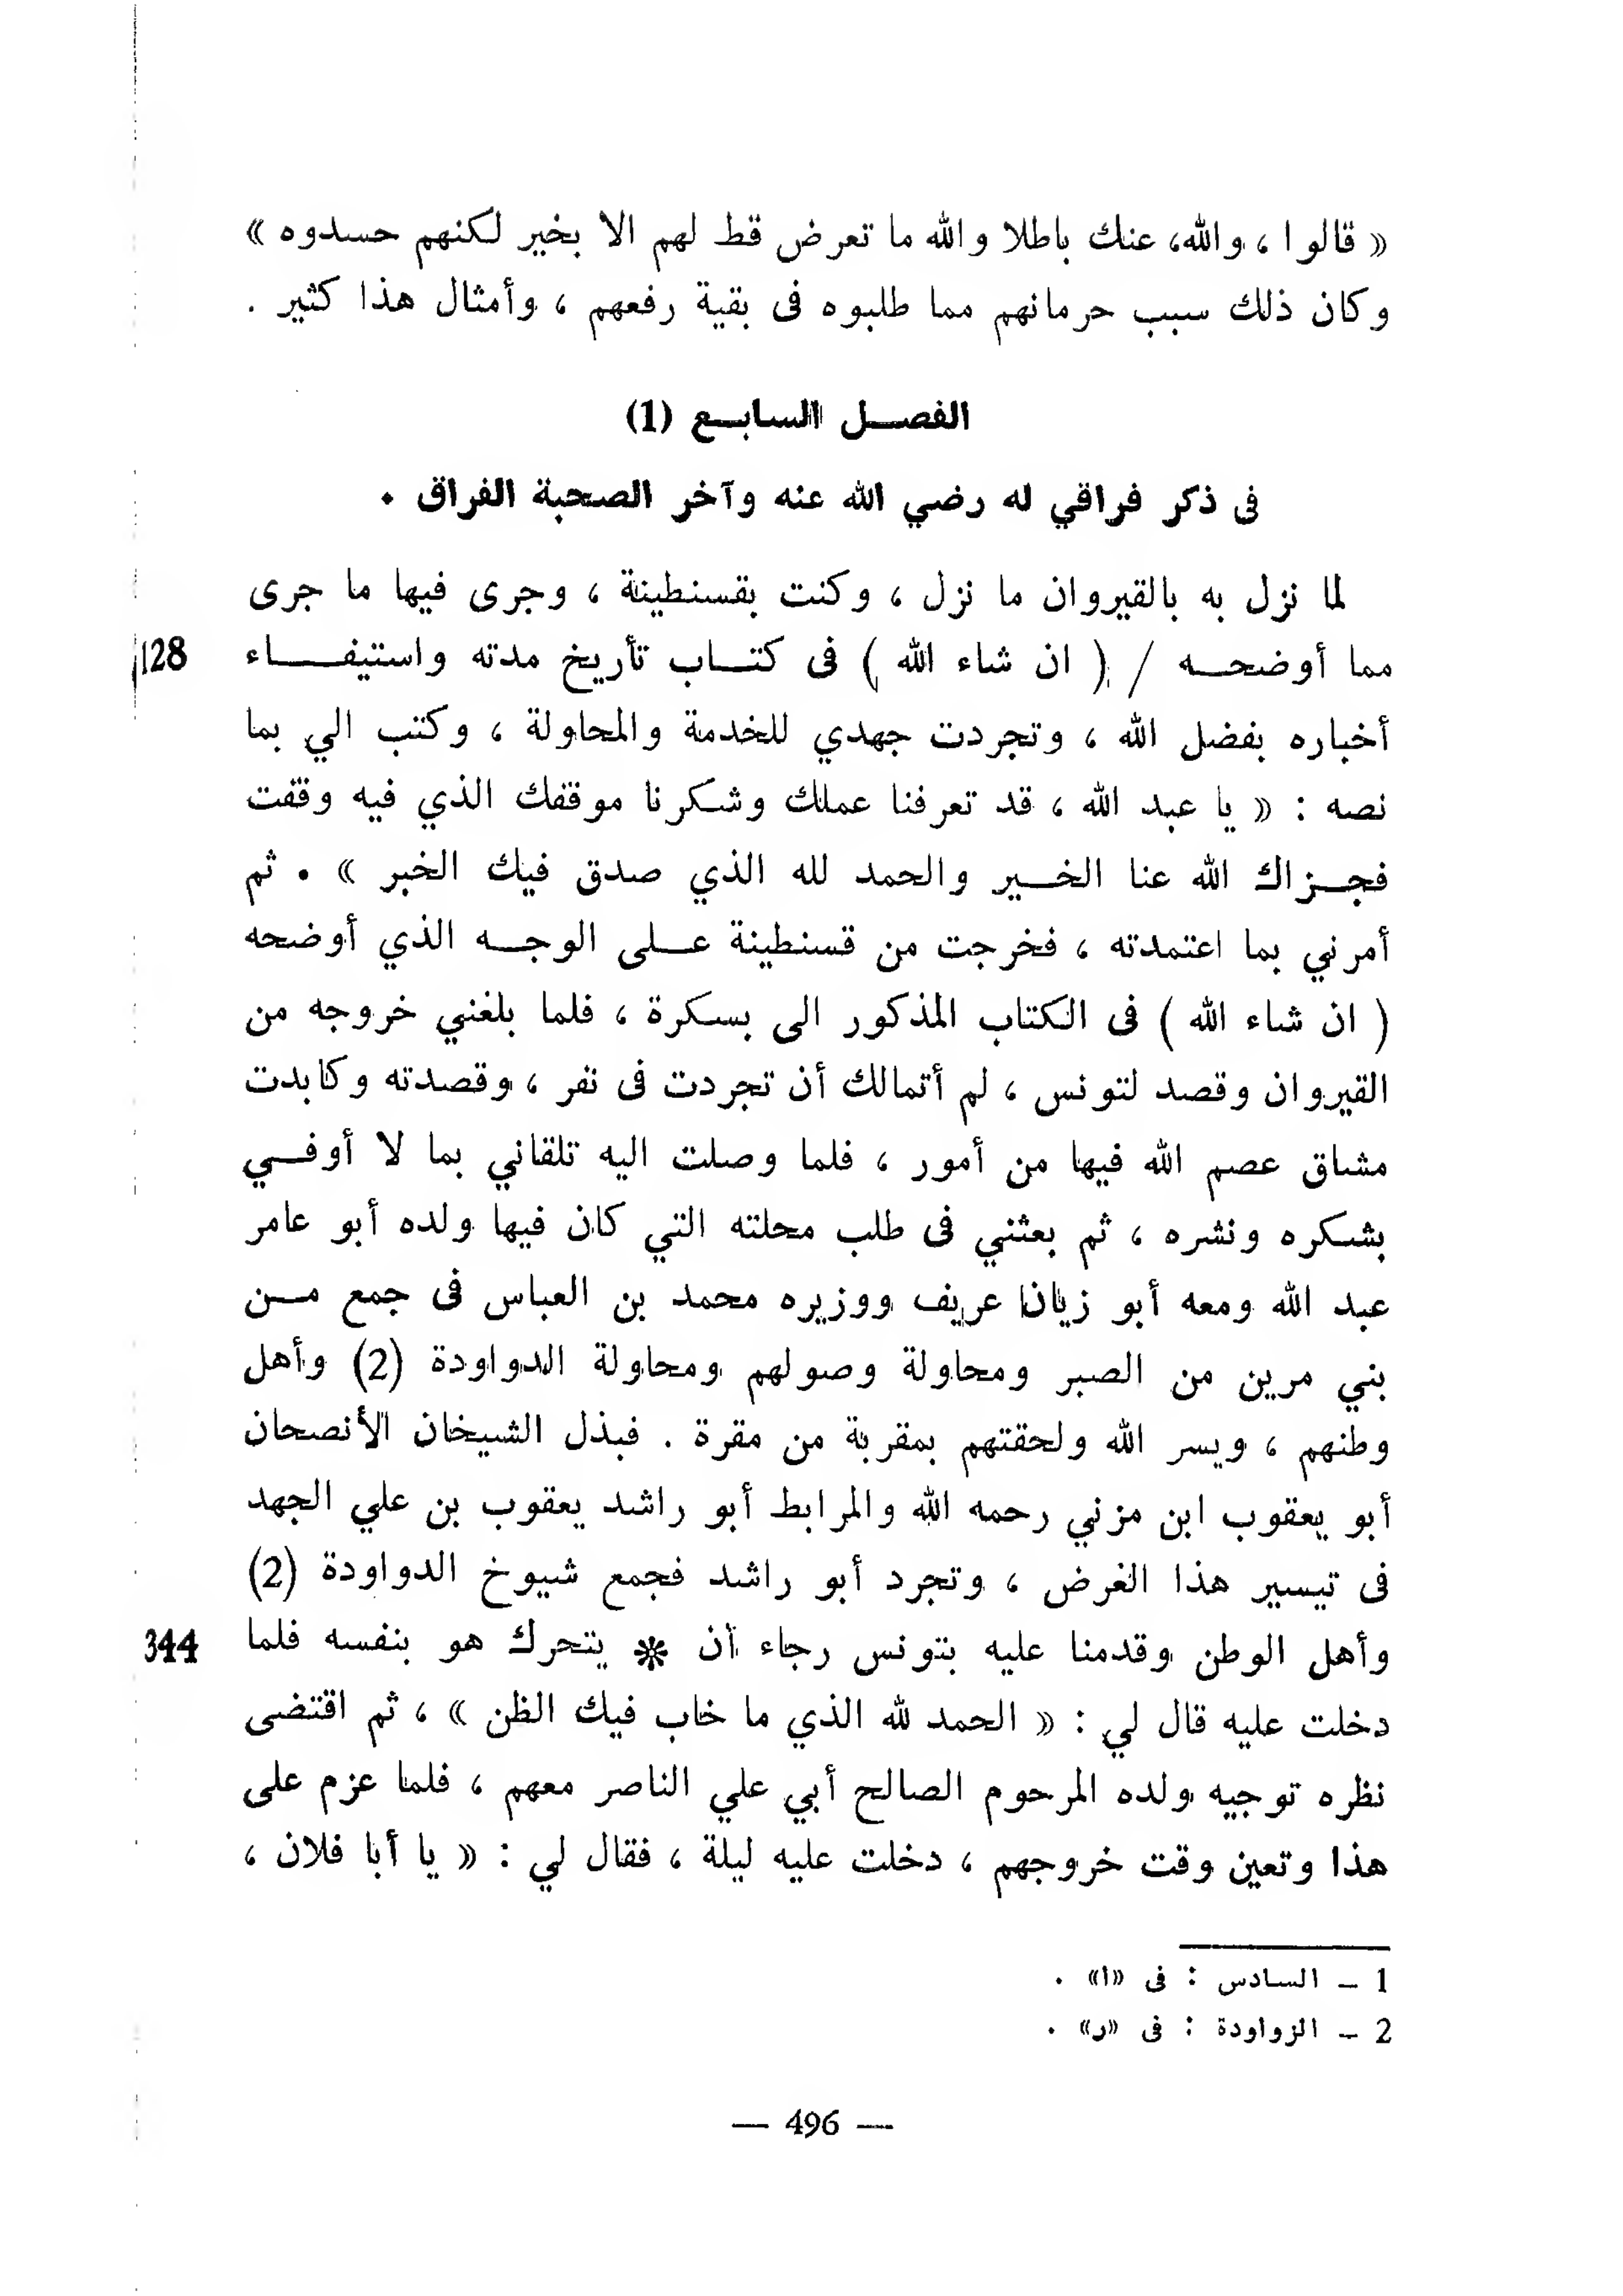 « قالوا ، والله، عنك باطلا والله ما تعرض قط لهم الا بخير لكنهم حسدوه »
وكان ذلك سبب حرمانهم مما طلبوه فى بقية رفعهم ، وأمثال هذا كثير .
الفصـل السابـع (1)
فى ذكر فراقي له رضي الله عنه وآخر الصحبة الفراق .
لما نزل به بالقيروان ما نزل ، وكنت بقسنطينة ، وجرى فيها ما جرى
مما أوضحـه / ( ان شاء الله ) فى كتـاب تأريخ مدته واستيفـاء
128
أخباره بفضل الله ، وتجردت جهدي للخدمة والمحاولة ، وكتب الي بما
نصه : « يا عبد الله ، قد تعرفنا عملك وشكرنا موقفك الذي فيه وقفت
فجـزاك الله عنا الخـير والحمد لله الذي صدق فيك الخبر » . ثم
أمرني بما اعتمدته ، فخرجت من قسنطينة عـلى الوجـه الذي أوضحه
( ان شاء الله ) فى الكتاب المذكور الى بسكرة ، فلما بلغني خروجه من
القيروان وقصد لتونس ، لم أتمالك أن تجردت فى نفر ، وقصدته وكابدت
مشاق عصم الله فيها من أمور ، فلما وصلت اليه تلقاني بما لا أوفـي
بشكره ونشره ، ثم بعثني فى طلب محلته التي كان فيها ولده أبو عامر
عبد الله ومعه أبو زيان عريف ووزيره محمد بن العباس فى جمع مـن
بني مرين من الصبر ومحاولة وصولهم ومحاولة الدواودة (2) وأهل
وطنهم ، ويسر الله ولحقتهم بمقربة من مقرة . فبذل الشيخان الأنصحان
أبو يعقوب ابن مزني رحمه الله والمرابط أبو راشد يعقوب بن علي الجهد
فى تيسير هذا الغرض ، وتجرد أبو راشد فجمع شيوخ الدواودة (2)
وأهل الوطن وقدمنا عليه بتونس رجاء أن * يتحرك هو بنفسه فلما
344
دخلت عليه قال لي : « الحمد لله الذي ما خاب فيك الظن » ، ثم اقتضى
نظره توجيه ولده المرحوم الصالح أبي علي الناصر معهم ، فلما عزم على
هذا وتعين وقت خروجهم ، دخلت عليه ليلة ، فقال لي : « يا أبا فلان ،
1 – السادس : فى «ا» .
2 – الزواودة : فى «ر» .
— 496 —